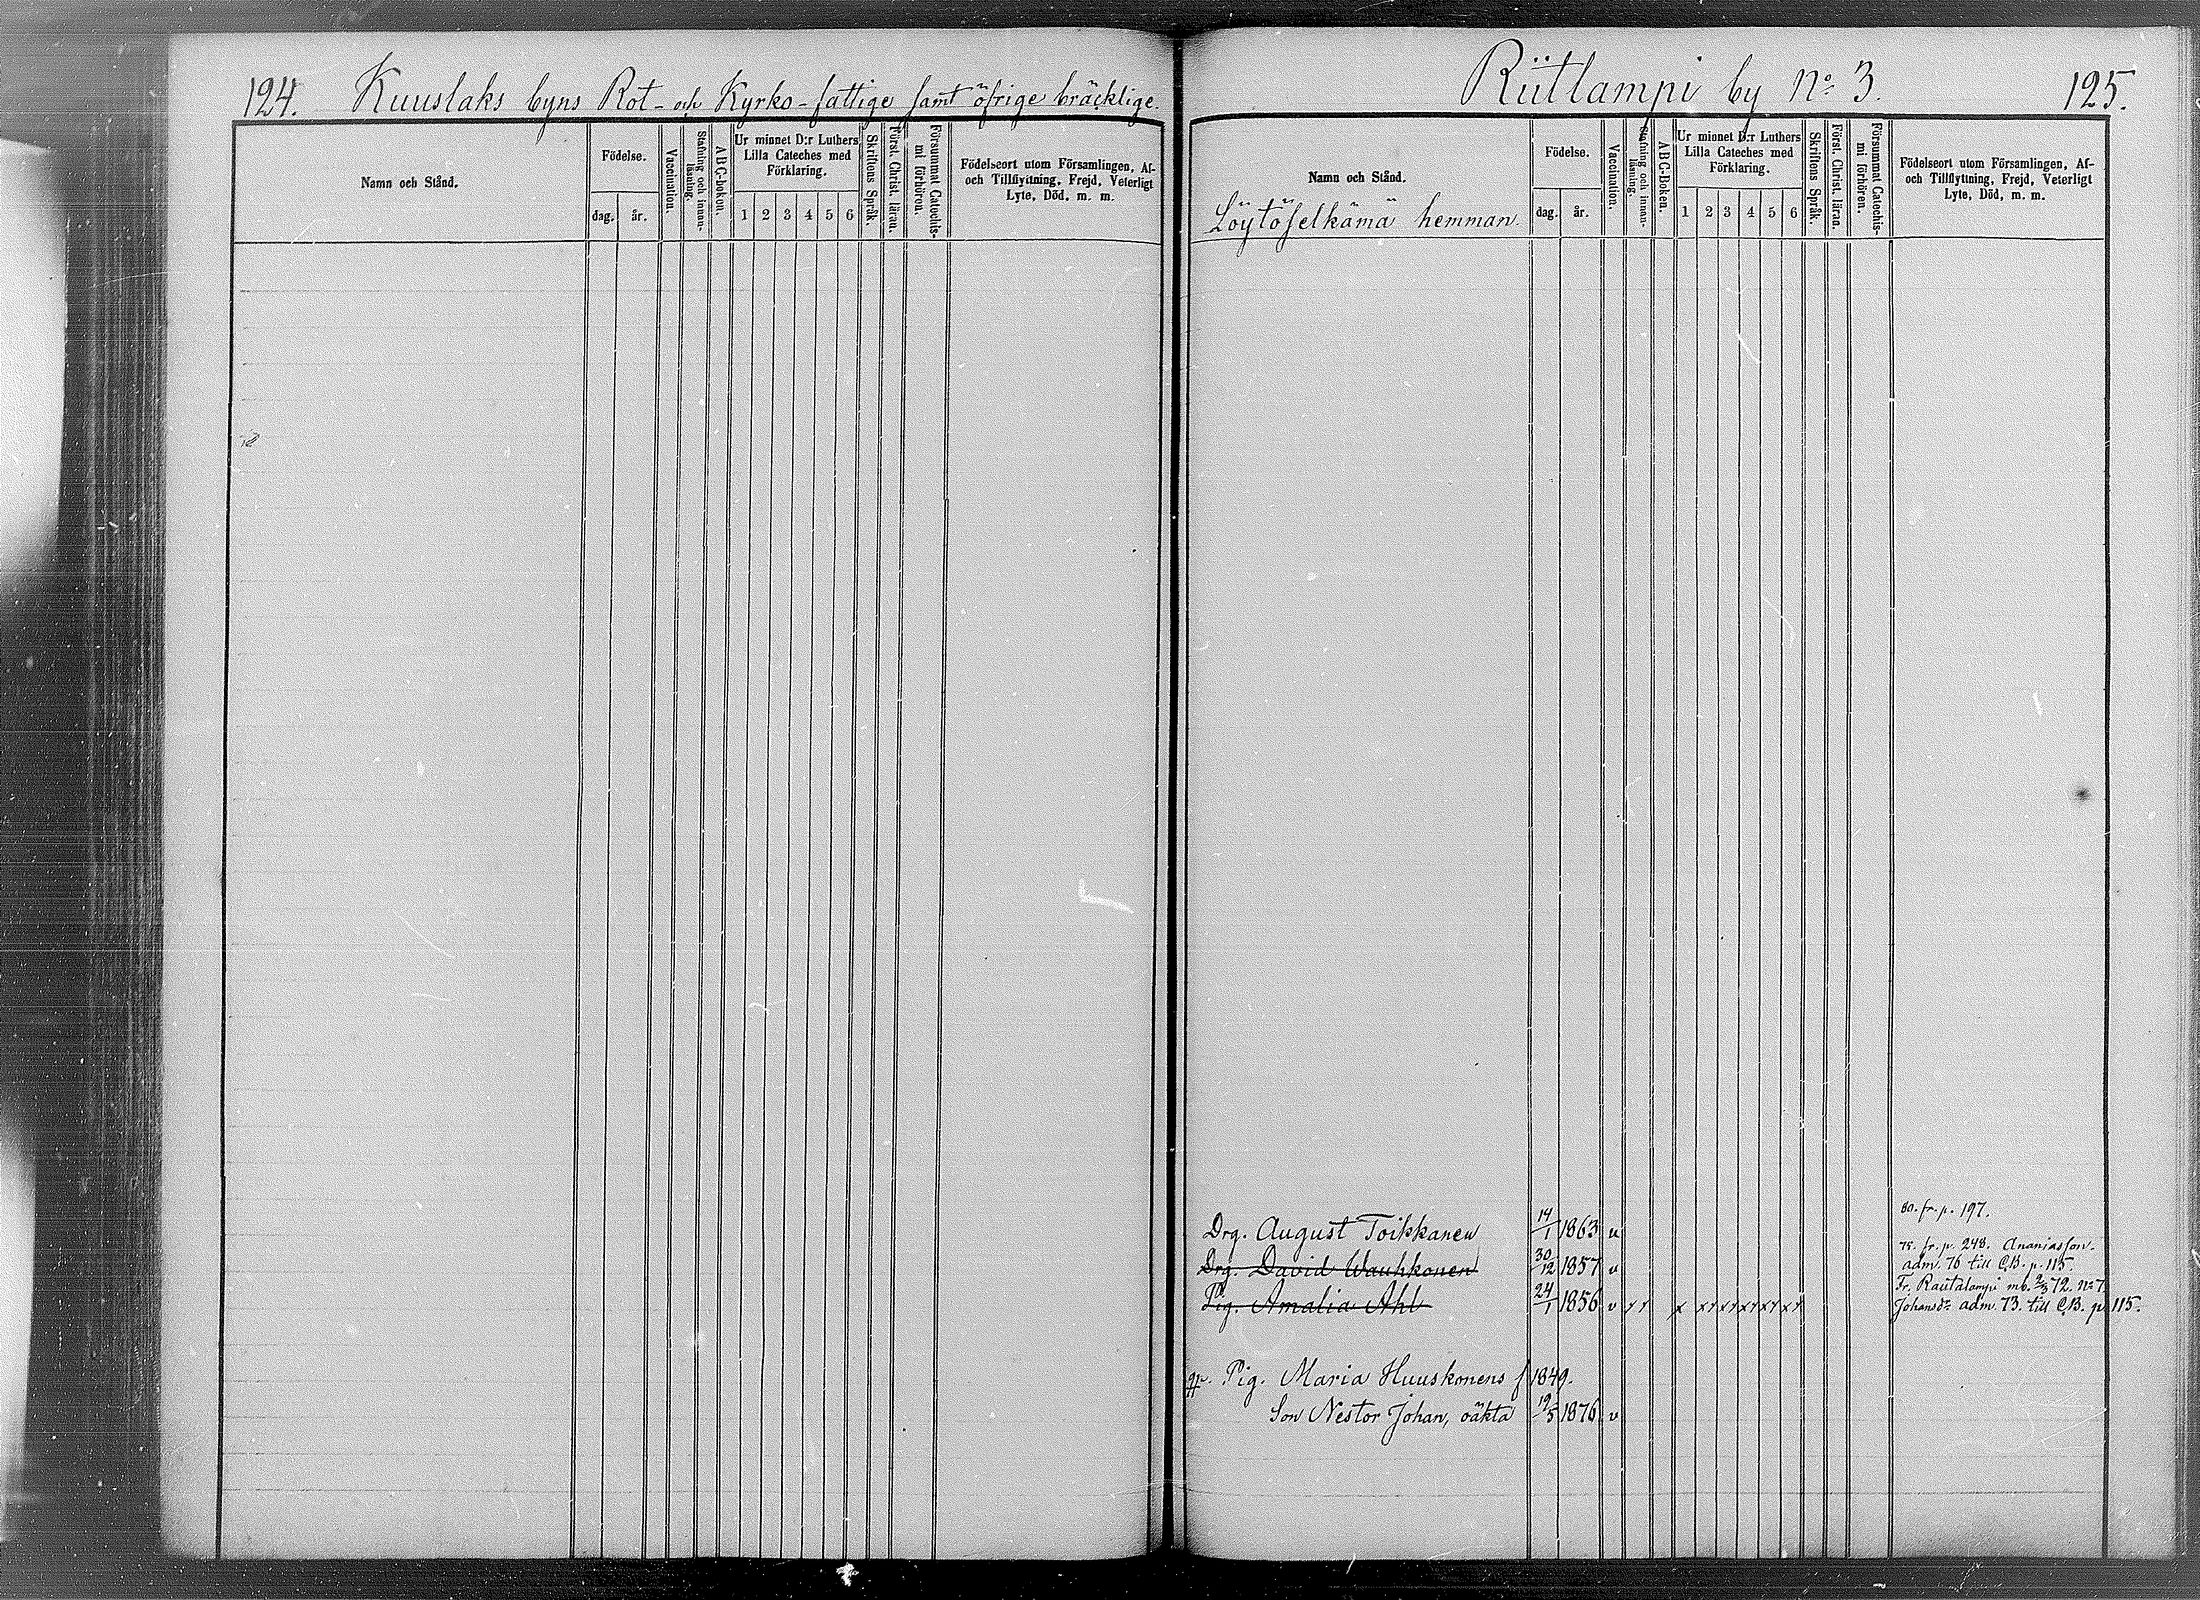 124. Kuuslaks byns Rot- och Kyrko-fattige samt öfrige bräcklige.
Namn och Stånd.
Födelse.
dag. år.
Vaccination.
Stafning och innan-läsning.
ABC-boken.
Ur minnet D:r Luthers
Lilla Cateches med
Förklaring.
1 2 3 4 5 6
Skriftens Språk.
Först. Christ. läran.
Försummat Catechis-
mi förhören.
Födelseort utom Församlingen, Af-
och Tillflyttning, Frejd, Veterligt
Lyte, Död, m. m.
Riitlampi by No 3. 125.
Namn och Stånd.
Löytöselkämä hemman.
Födelse.
dag. år.
Vaccination.
Stafning och innan-
läsning.
ABC-Boken.
Ur minnet D:r Luthers
Lilla Cateches med
Förklaring.
1 2 3 4 5 6
Skriftens Språk.
Först. Christ. läran.
Försummat Catechis-
mi förhören.
Födelseort utom Församlingen, Af-
och Tillflyttning, Frejd, Veterligt
Lyte, Död, m. m.
Drg. August Toikkanen 14/1 1863 v 80. fr. p. 197.
Drg. David Wauhkonen 30/12 1857 v 75. fr. p. 248. Ananiasson.
adm. 76 till C.B. p. 115.
Pig. Amalia Ahl 24/1 1856 v Fr. Rautalampi mb. 2/3 72. No 7
Johansdr adm. 73. till C.B. p. 115.
Pig. Maria Huuskonens f 1849.
Son Nestor Johan, oäkta 19/5 1876 v